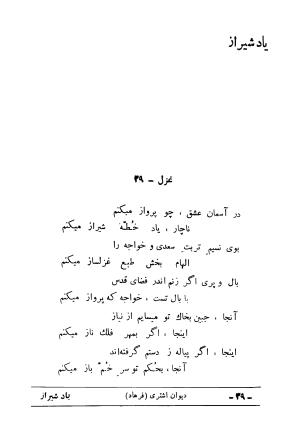 یاد شیراز
غزل - ۳۹
در آسمان عشق ، چو پرواز میکنم
ناچار ، یاد خطّهٔ شیراز میکنم
بوی نسیم تربت سعدی و خواجه را
الهام بخش طبع غزلساز میکنم
بال و پری اگر زنم اندر فضای قدس
با بال تست ، خواجه که پرواز میکنم
آنجا ، جبین بخاک تو میسایم از نیاز
اینجا ، اگر بمهر فلك ناز میکنم
اینجا ، اگر پیاله ز دستم گرفته‌اند
آنجا ، بحکم تو سر خُم باز میکنم
- ۳۹ - دیوان اشتری (فرهاد) یاد شیراز